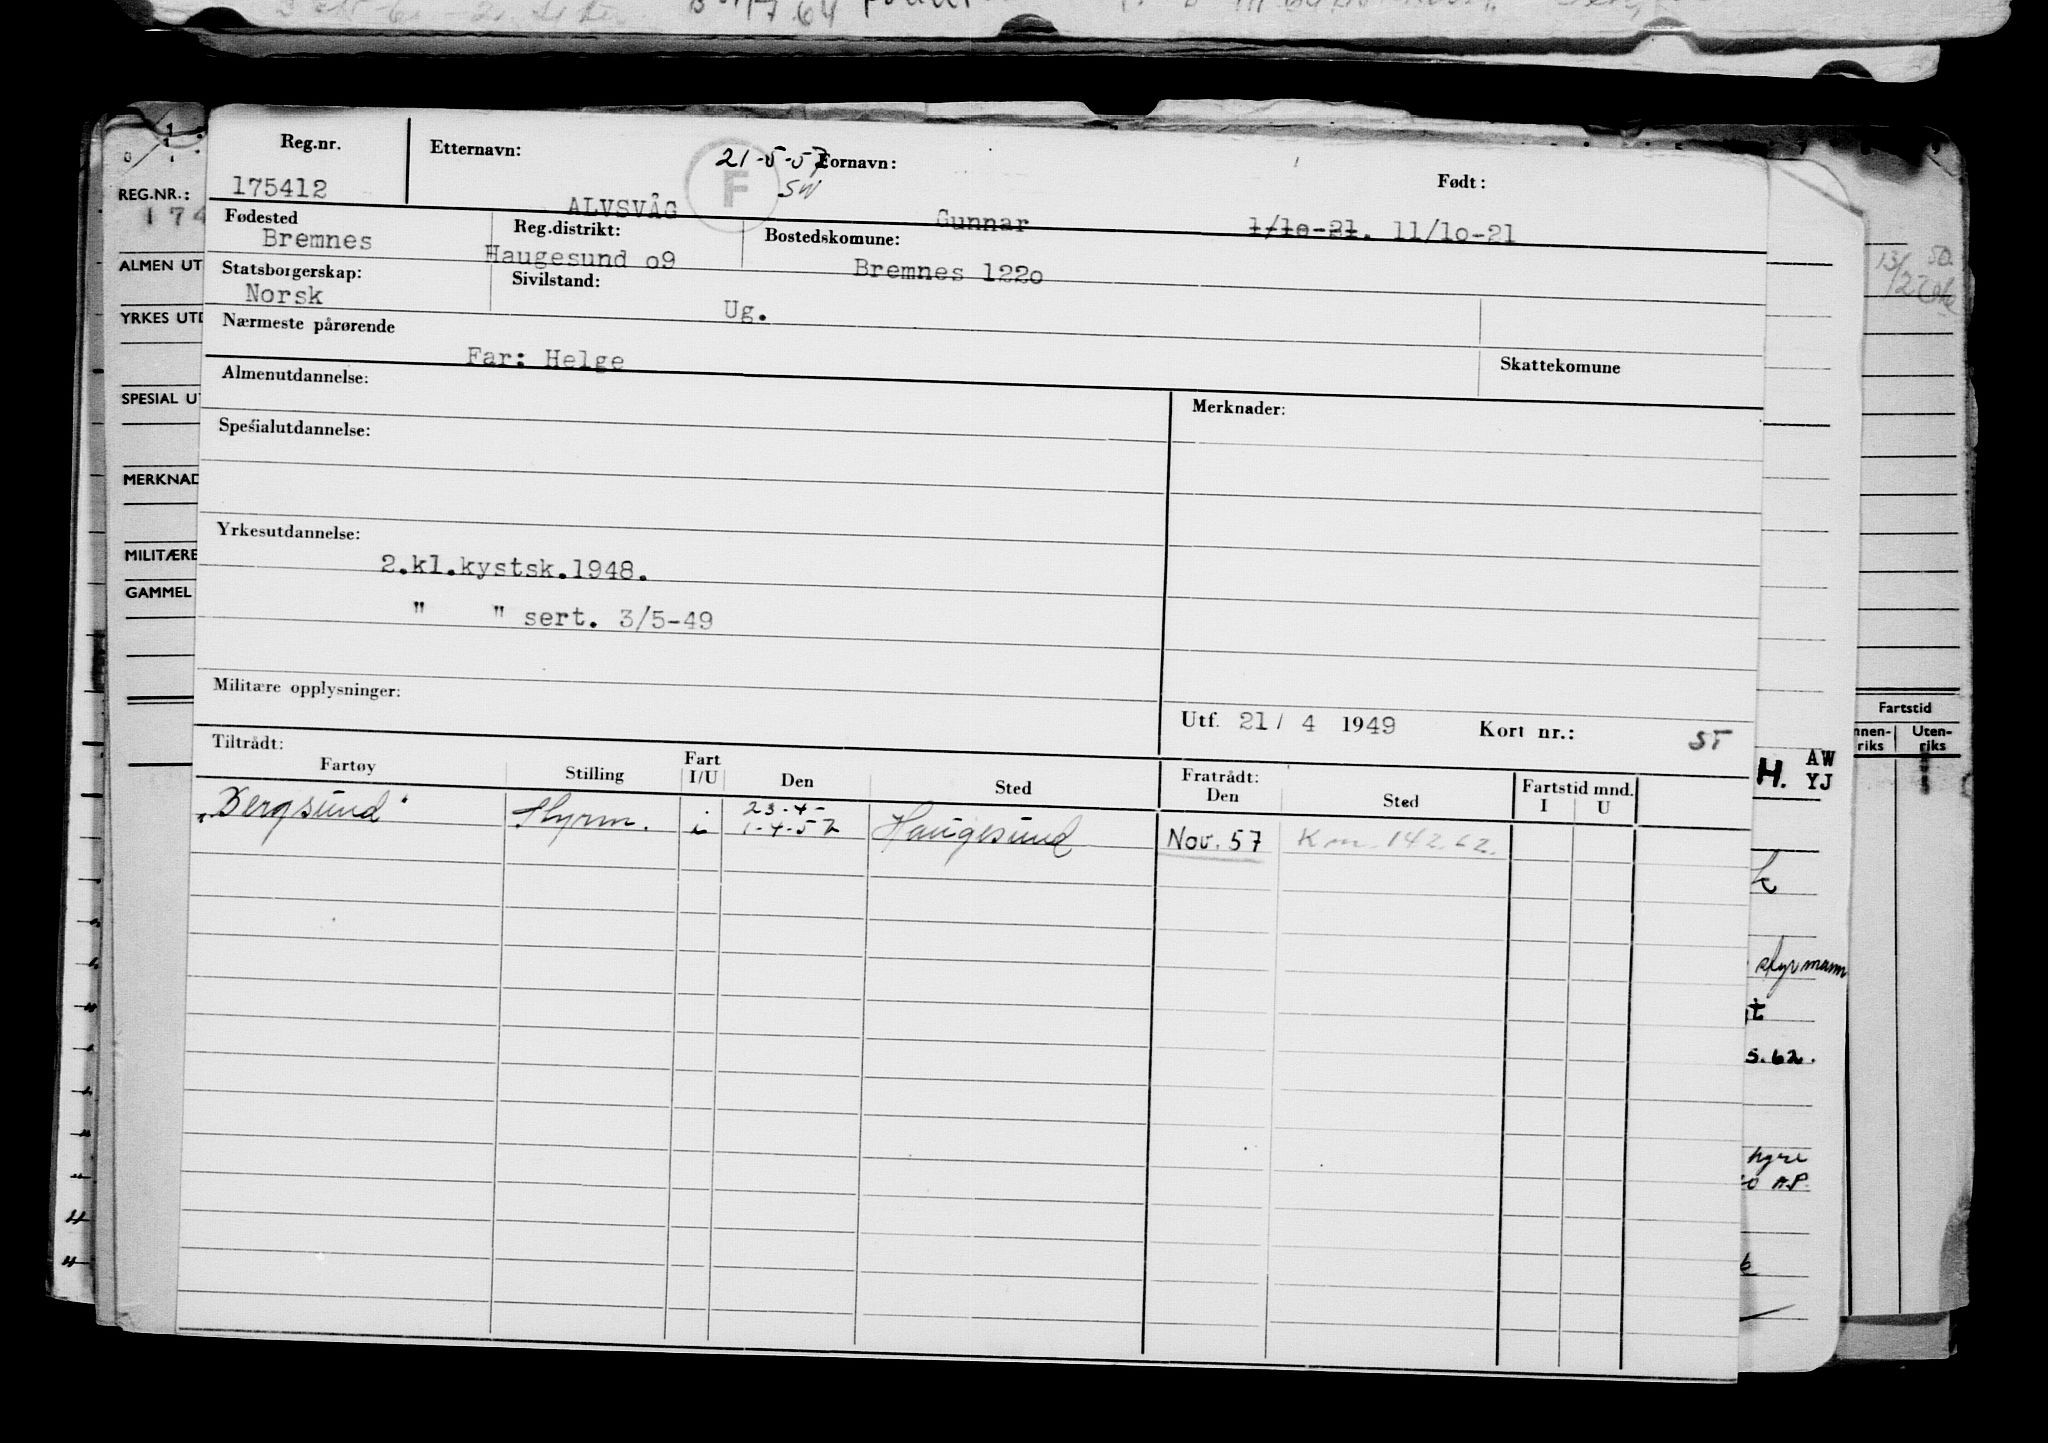 Reg.nr. Etternavn: 21-5-57 Fornavn: Født:
175412 ALVSVÅG F SW Gunnar 1/10-21. 11/10-21
Fødested Reg.distrikt: Bostedskomune:
Bremnes Haugesund o9 Bremnes 122o
Statsborgerskap: Sivilstand:
Norsk Ug.
Nærmeste pårørende
Far: Helge Skattekomune
Almenutdannelse: Merknader:
Spesialutdannelse:
Yrkesutdannelse:
2.kl.kystsk.1948.
" " sert. 3/5-49
Militære opplysninger:
Utf. 21/ 4 1949 Kort nr.: ST
Tiltrådt: Fratrådt: Fartstid mnd.
Fartøy Stilling Fart I/U Den Sted Den Sted I U
23-4-
"Bergsund" Styrm. i 1-4-57 Haugesund Nov. 57 Km. 142.62.
REG.NR.:
174
ALMEN UT
YRKES UTD
SPESIAL UT
MERKNAD
MILITÆRE
GAMMEL
Fartstid
nnen-
riks
Uten-
riks
H. AW
YJ
styrmann
5.62.
hyre
A.P.